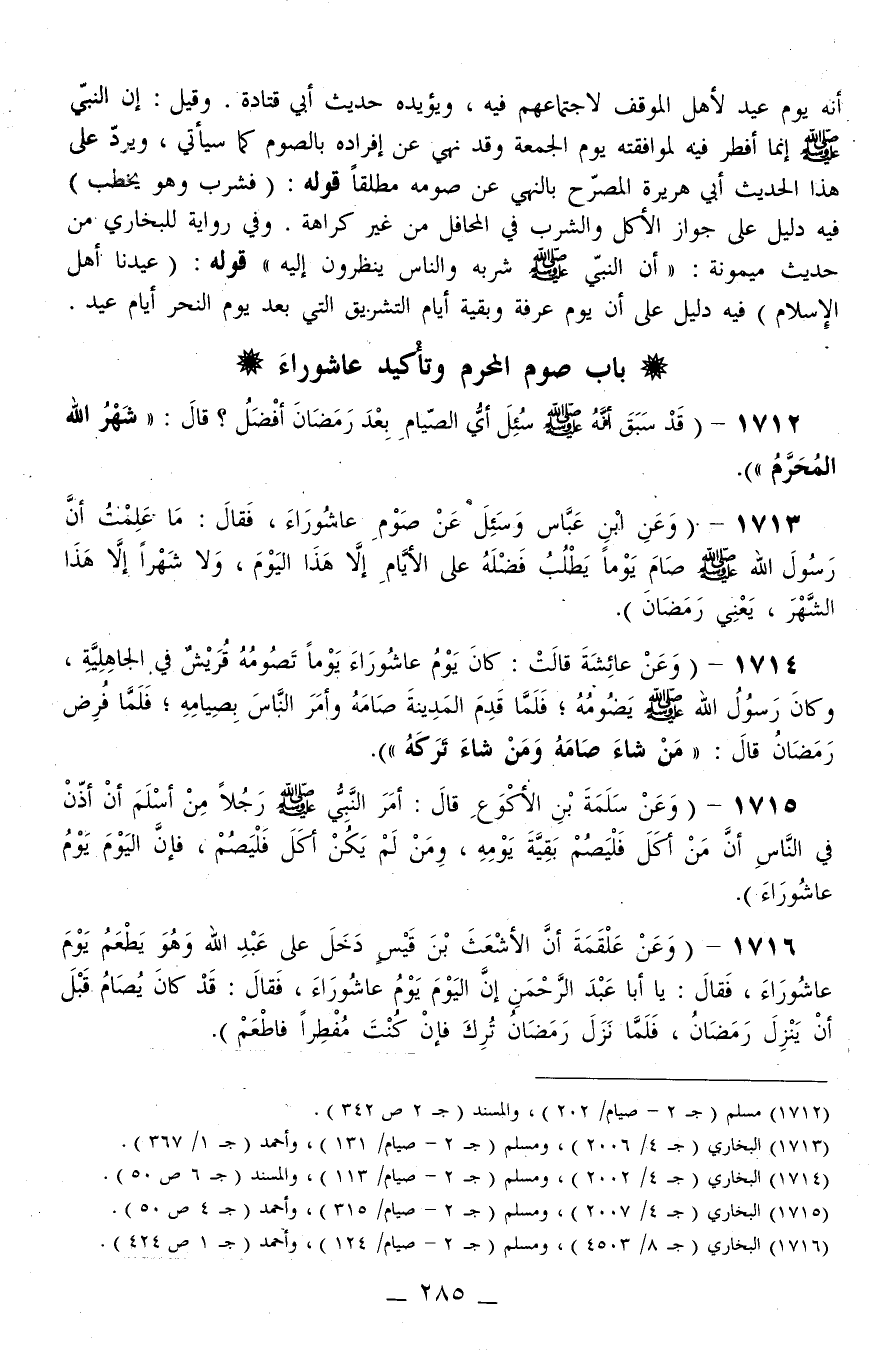 أنه يوم عيد لأهل الموقف لاجتماعهم فيه ، ويؤيده حديث أبي قتادة . وقيل : إن النبيّ
ﷺ إنما أفطر فيه لموافقته يوم الجمعة وقد نهي عن إفراده بالصوم كما سيأتي ، ويردّ على
هذا الحديث أبي هريرة المصرّح بالنهي عن صومه مطلقاً قوله : ( فشرب وهو يخطب )
فيه دليل على جواز الأكل والشرب في المحافل من غير كراهة . وفي رواية للبخاري من
حديث ميمونة : « أن النبيّ ﷺ شربه والناس ينظرون إليه » قوله : ( عيدنا أهل
الإسلام ) فيه دليل على أن يوم عرفة وبقية أيام التشريق التي بعد يوم النحر أيام عيد .
باب صوم المحرم وتأكيد عاشوراءَ
١٧١٢ – ( قَدْ سَبَقَ أنَّهُ ﷺ سُئِلَ أيُّ الصّيامِ بعْدَ رَمَضَانَ أفْضَلُ ؟ قالَ : « شَهْرُ الله
المُحَرَّمُ »).
١٧١٣ – ( وَعَنِ ابْنِ عَبَّاس وَسَئِلَ عَنْ صَوْمِ عاشُورَاءَ ، فَقالَ : مَا عَلِمْتُ أنَّ
رَسُولَ الله ﷺ صَامَ يَوْماً يَطْلُبُ فَضْلَهُ على الأيَّامِ إلَّا هَذَا اليَوْمَ ، وَلا شَهْراً إلَّا هَذَا
الشَّهْرَ ، يَعْنِي رَمَضَانَ ).
١٧١٤ – ( وَعَنْ عائِشَةَ قالَتْ : كانَ يَوْمُ عاشُورَاءَ يَوْماً تَصُومُهُ قُرَيْشٌ في الجاهِليَّةِ ،
وكانَ رَسُولُ الله ﷺ يَصُومُهُ ؛ فَلَمَّا قَدِمَ المَدِينةَ صَامَهُ وأمَرَ النَّاسَ بِصِيامِهِ ؛ فَلَمَّا فُرِض
رَمَضَانُ قالَ : « مَنْ شاءَ صَامَهُ وَمَنْ شاءَ تَرَكَهُ »).
١٧١٥ – ( وَعَنْ سَلَمَةَ بْنِ الأكْوَعِ قالَ : أمَرَ النَّبِيُّ ﷺ رَجُلاً مِنْ أسْلَمَ أنْ أذّنْ
في النَّاسِ أنَّ مَنْ أكَلَ فَلْيَصُمْ بَقِيَّةَ يَوْمِهِ ، ومَنْ لَمْ يَكُنْ أكَلَ فَلْيَصُمْ ، فإنَّ اليَوْمَ يَوْمُ
عاشُورَاءَ ).
١٧١٦ – ( وَعَنْ عَلْقَمَةَ أنَّ الأشْعَثَ بْنَ قَيْسٍ دَخَلَ على عَبْدِ الله وَهُوَ يَطْعَمُ يَوْمَ
عاشُورَاءَ ، فَقالَ : يا أبا عَبْدَ الرَّحْمَنِ إنَّ اليَوْمَ يَوْمُ عاشُورَاءَ ، فَقالَ : قَدْ كانَ يُصَامُ قَبْلَ
أنْ يَنْزِلَ رَمَضَانُ ، فَلَمَّا نَزَلَ رَمَضَانُ تُرِكَ فإنْ كُنْتَ مُفْطِراً فاطْعَمْ ).
(١٧١٢) مسلم ( جـ ٢ – صيام/ ٢٠٢ ) ، والمسند ( جـ ٢ ص ٣٤٢ ) .
(١٧١٣) البخاري ( جـ ٤/ ٢٠٠٦ ) ، ومسلم ( جـ ٢ – صيام/ ١٣١ ) ، وأحمد ( جـ ١/ ٣٦٧ ) .
(١٧١٤) البخاري ( جـ ٤/ ٢٠٠٢ ) ، ومسلم ( جـ ٢ – صيام/ ١١٣ ) ، والمسند ( جـ ٦ ص ٥٠ ) .
(١٧١٥) البخاري ( جـ ٤/ ٢٠٠٧ ) ، ومسلم ( جـ ٢ – صيام/ ٣١٥ ) ، وأحمد ( جـ ٤ ص ٥٠ ) .
(١٧١٦) البخاري ( جـ ٨/ ٤٥٠٣ ) ، ومسلم ( جـ ٢ – صيام/ ١٢٤ ) ، وأحمد ( جـ ١ ص ٤٢٤ ) .
– ٢٨٥ –